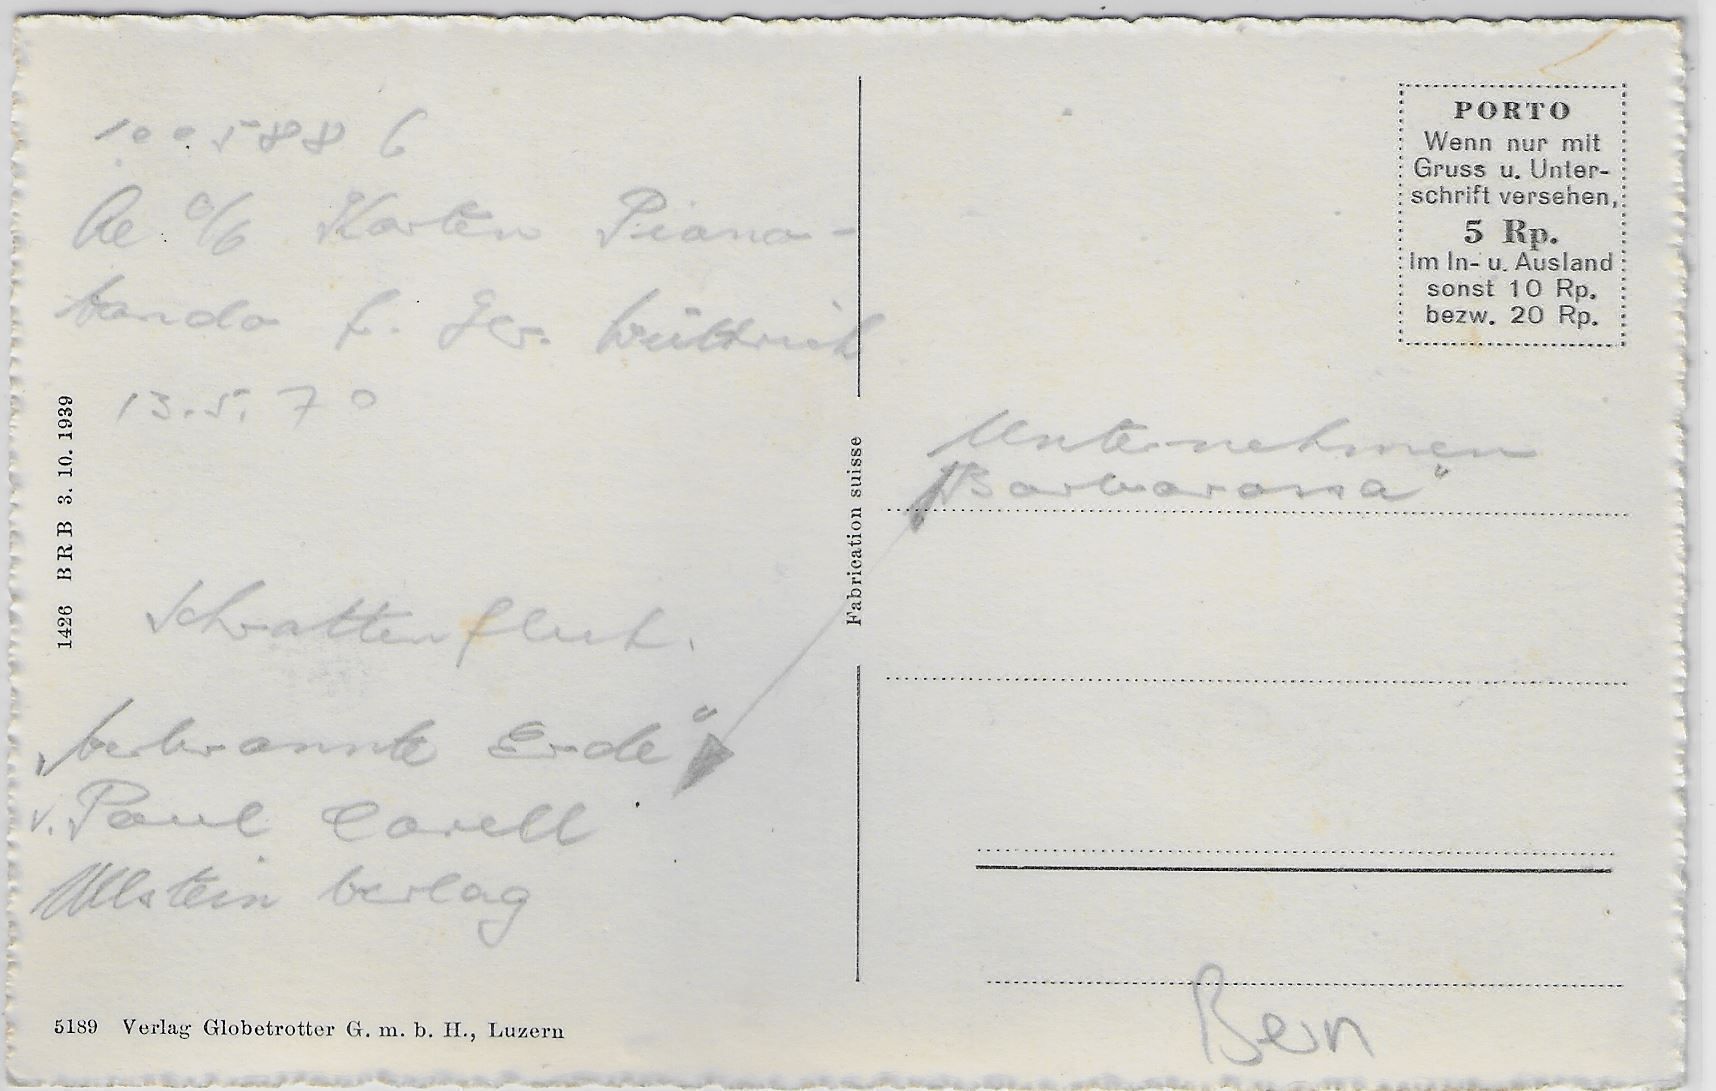 1005886
Re % Karten Piano-
f. Gebr. Wüthrich
13.5.70
Schrattenfluh.
„verbrannte Erde"
v. Paul Carell
Ullstein Verlag
1426 BRB 3. 10. 1939
5189 Verlag Globetrotter G. m. b. H., Luzern
Fabrication suisse
PORTO
Wenn nur mit
Gruss u. Unter-
schrift versehen,
5 Rp.
Im In- u. Ausland
sonst 10 Rp.
bezw. 20 Rp.
Unternehmen
„Barbarossa"
Bern